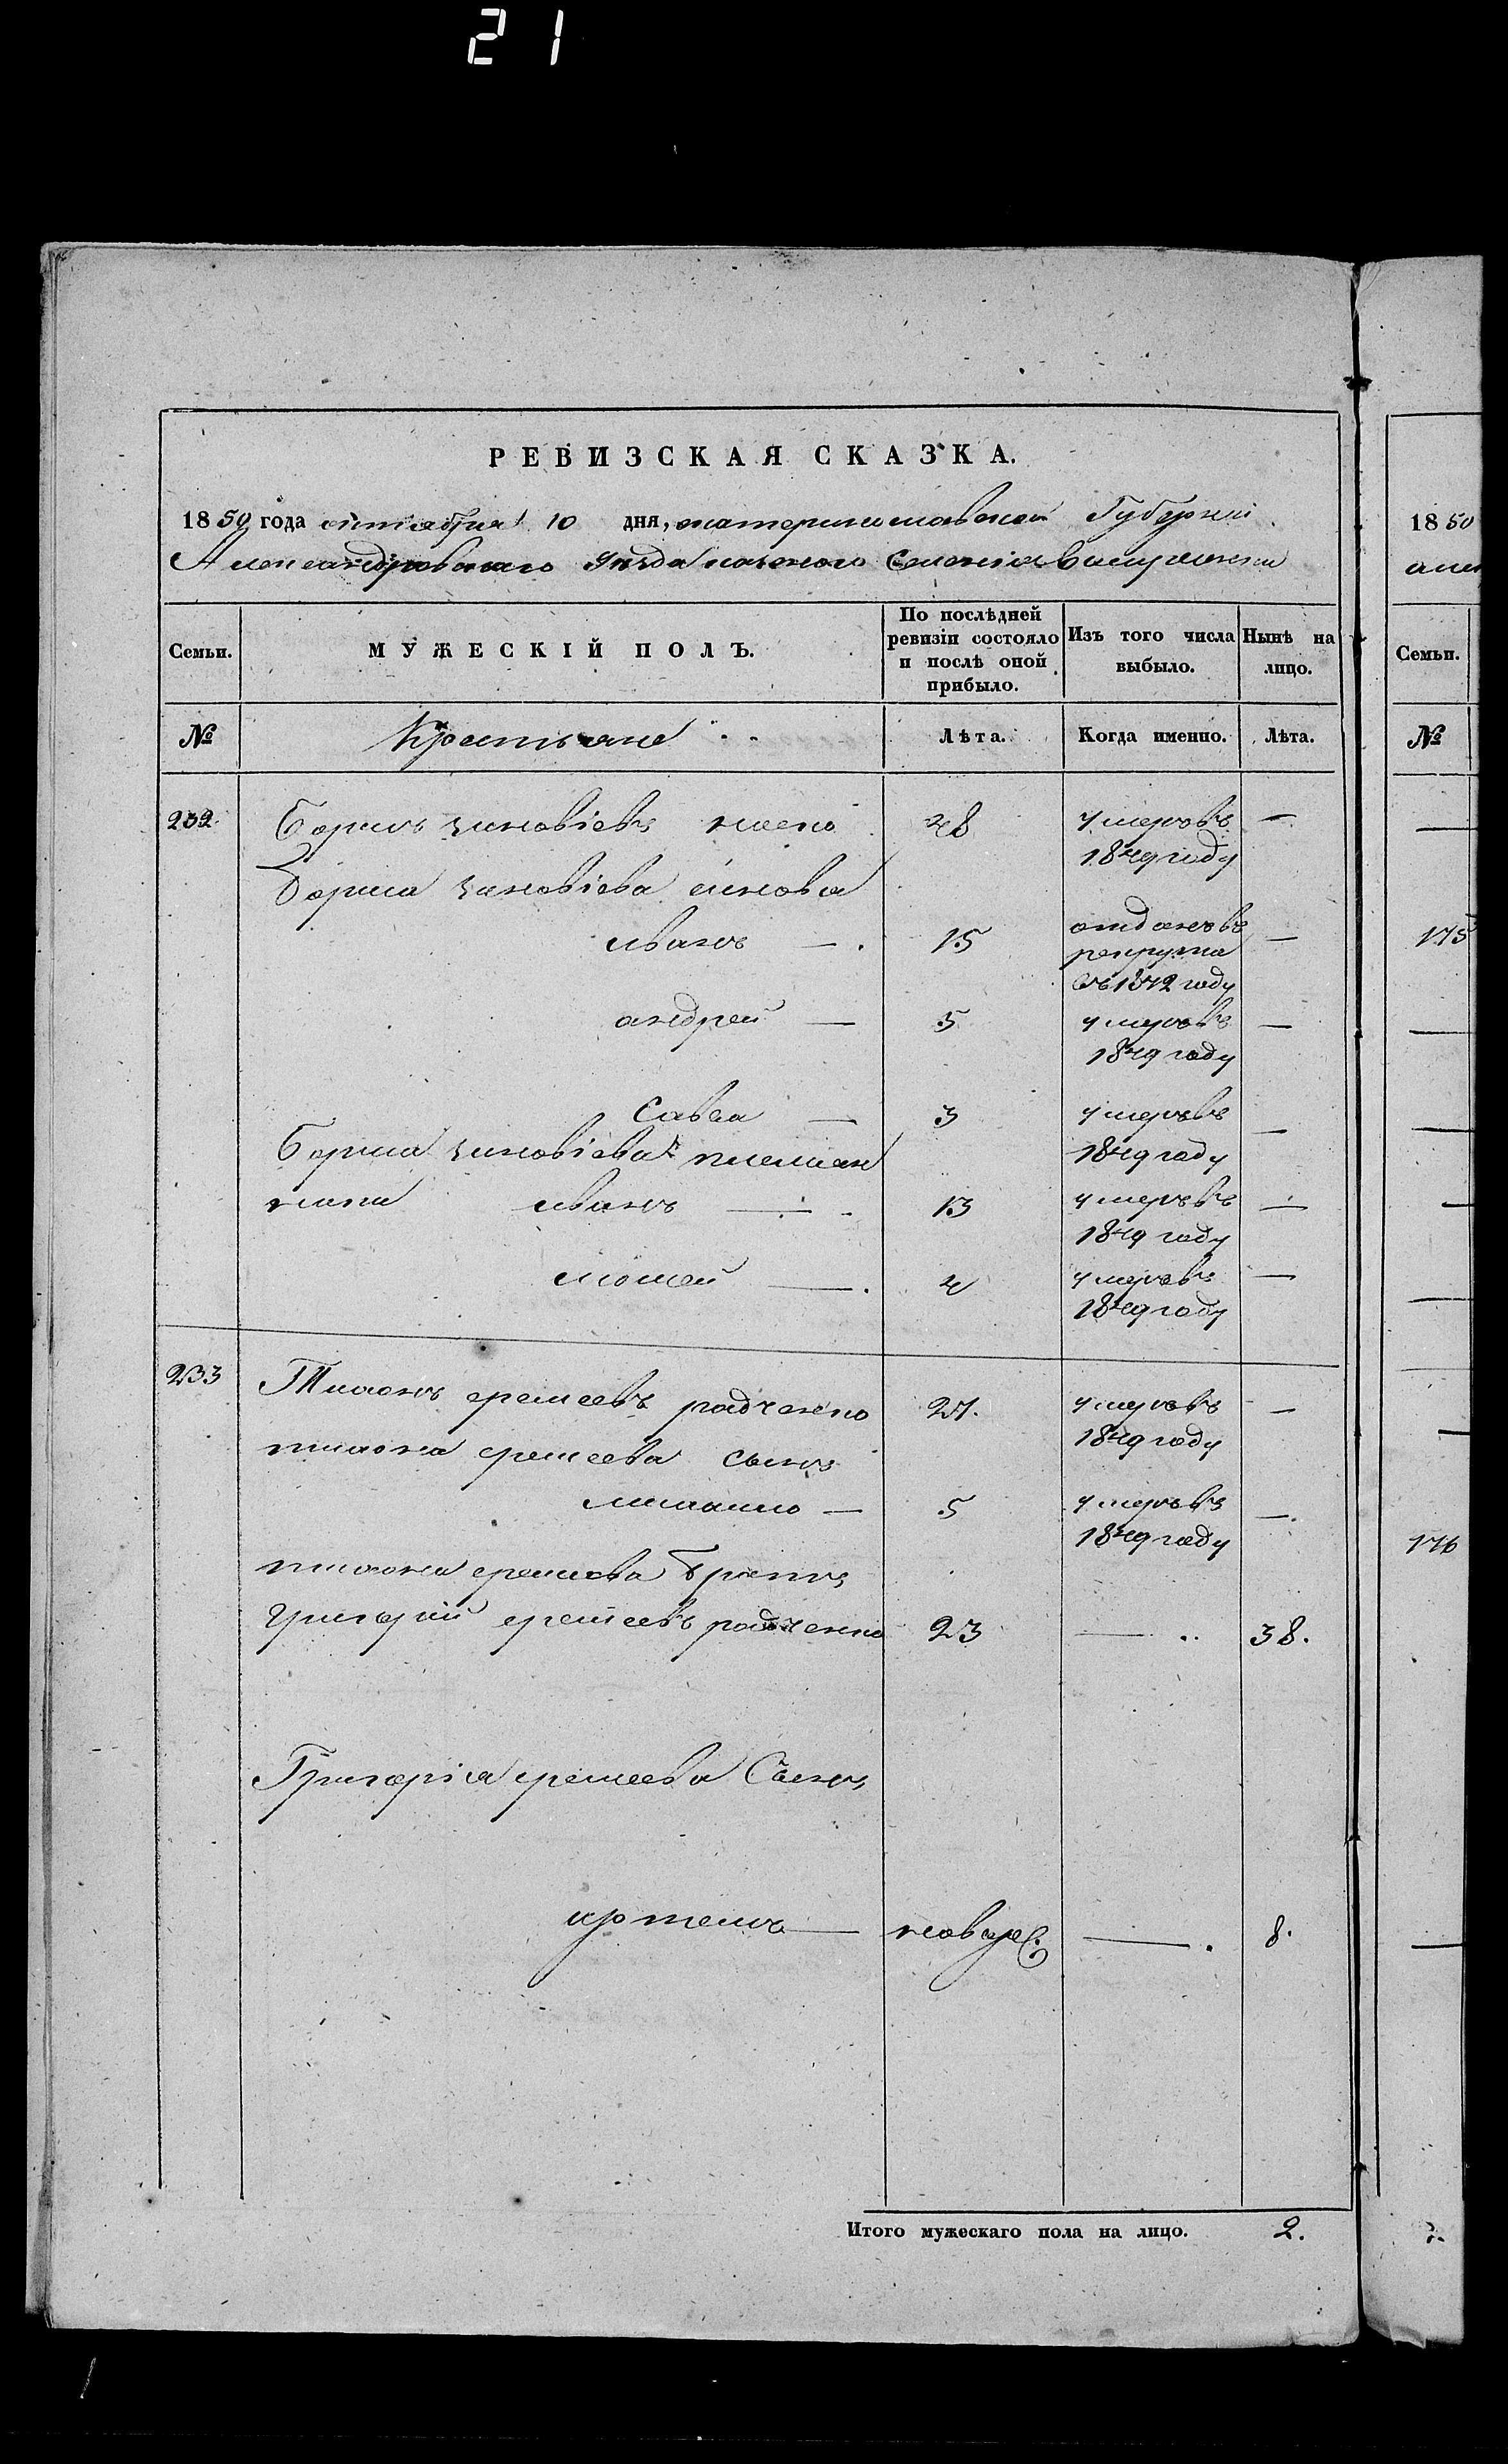 21
РЕВИЗСКАЯ СКАЗКА.
1850 года октября 10 дня, екатеринославской Губерніи
Александровскаго уѣзда казеного Селенія
Семьи. МУЖЕСКІЙ ПОЛЪ. По послѣдней ревизіи состояло и послѣ оной прибыло. Изъ того числа выбыло. Нынѣ на лицо.
№ Крестьяне Лѣта. Когда именно. Лѣта.
232 Борисъ зиновіевъ 48 умеръ въ —
1849 году
Бориса зиновіева сынова
иванъ — 15 отданъ въ —
рекрута
въ 1842 году
андрей — 5 умеръ въ —
1849 году
Савва — 3 умеръ въ —
Бориса зиновіева племян 1849 году
ники иванъ — 13 умеръ въ —
1849 году
мосей — 4 умеръ въ —
1849 году
233 Тихонъ еремеевъ радченко 27. умеръ въ —
1849 году
тихона еремеева сынъ
михаило — 5 умеръ въ —
1849 году
тихона еремеева братъ
григорий еремеевъ радченко 23 — 38.
Григорія еремеева Сынъ
артемъ — новорж. — 8.
Итого мужескаго пола на лицо. 2.
1850
Семьи.
№
175
176